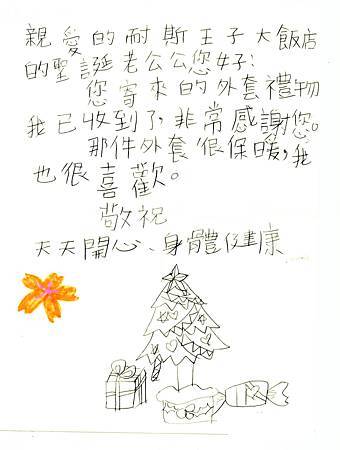 親愛的耐斯王子大飯店
的聖誕老公公您好:
您寄來的外套禮物
我已收到了,非常感謝您。
那件外套很保暖,我
也很喜歡。
敬祝
天天開心、身體健康